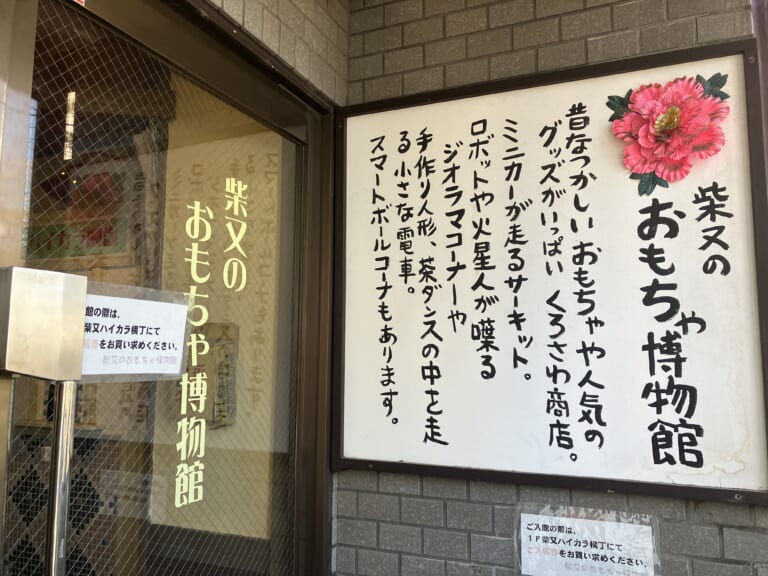 柴又の
おもちゃ博物館
昔なつかしいおもちゃや人気の
グッズがいっぱい くろさわ商店。
ミニカーが走るサーキット。
ロボットや火星人が喋る
ジオラマコーナーや
手作り人形、茶ダンスの中を走
る小さな電車。
スマートボールコーナもあります。
柴又の
おもちゃ博物館
館の際は、
柴又ハイカラ横丁にて
をお買い求めください。
柴又のおもちゃ博物館
ご入館の際は、
1F柴又ハイカラ横丁にて
ご入場券をお買い求めください。